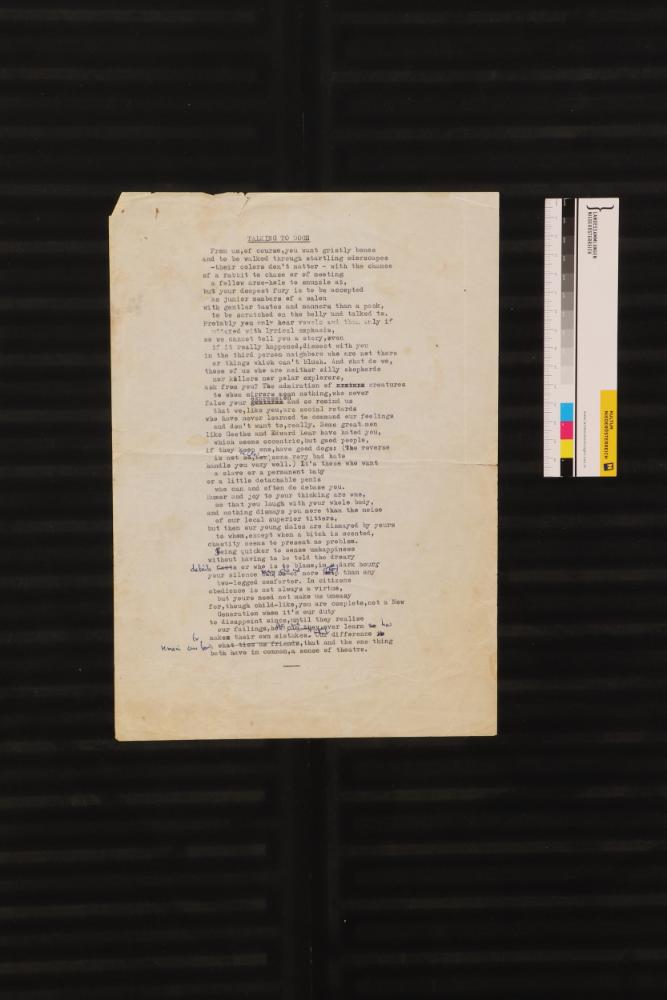 TALKING TO DOGS
From us,of course,you want gristly bones
and to be walked through startling odorscapes
-their colors don't matter - with the chance
of a rabbit to chase or of meeting
a fellow arse-hole to snuzzle at,
but your deepest fury is to be accepted
as junior members of a salon
with gentler tastes and manners than a pack,
to be scratched on the belly and talked to.
Probably you only hear vowels and then only if
uttered with lyrical emphasis,
so we cannot tell you a story,even
if it really happened,dissect with you
in the third person neighbors who are not there
or things which can't blush. And what do we,
those of us who are neither silly shepherds
nor killers nor polar explorers,
ask from you? The admiration of creatures
to whom mirrors mean nothing,who never
false your expression and so remind us
that we,like you,are social retards
who have never learned to command our feelings
and don't want to,really. Some great men
like Goethe and Edward Lear have hated you,
which seems eccentric,but good people,
if they keep one,have good dogs: (The reverse
is not so, some very bad hats
handle you very well.) It's those who want
a slave or a permanent baby
or a little detachable penis
who can and often do debase you.
Humor and joy to your thinking are one,
so that you laugh with your whole body,
and nothing dismays you more than the noise
of our local superior titters,
but then our young males are dismayed by yours
to whom,except when a bitch is scented,
chastity seems to present no problem.
Being quicker to sense unhappiness
without having to be told the dreary
details or who is to blame,in dark hours
your silence be of more than any
two-legged comforter. In citizens
obedience is not always a virtue,
but yours need not make us uneasy
for,though child-like,you are complete,not a New
Generation when it's our duty
to disappoint since,until they realise
our failings, they never learn
make their own mistakes. Our difference
what ties us friends,that and the one thing
both have in common,a sense of theatre.
LANDESSAMMLUNGEN
NIEDERÖSTERREICH
KULTUR
NIEDERÖSTERREICH